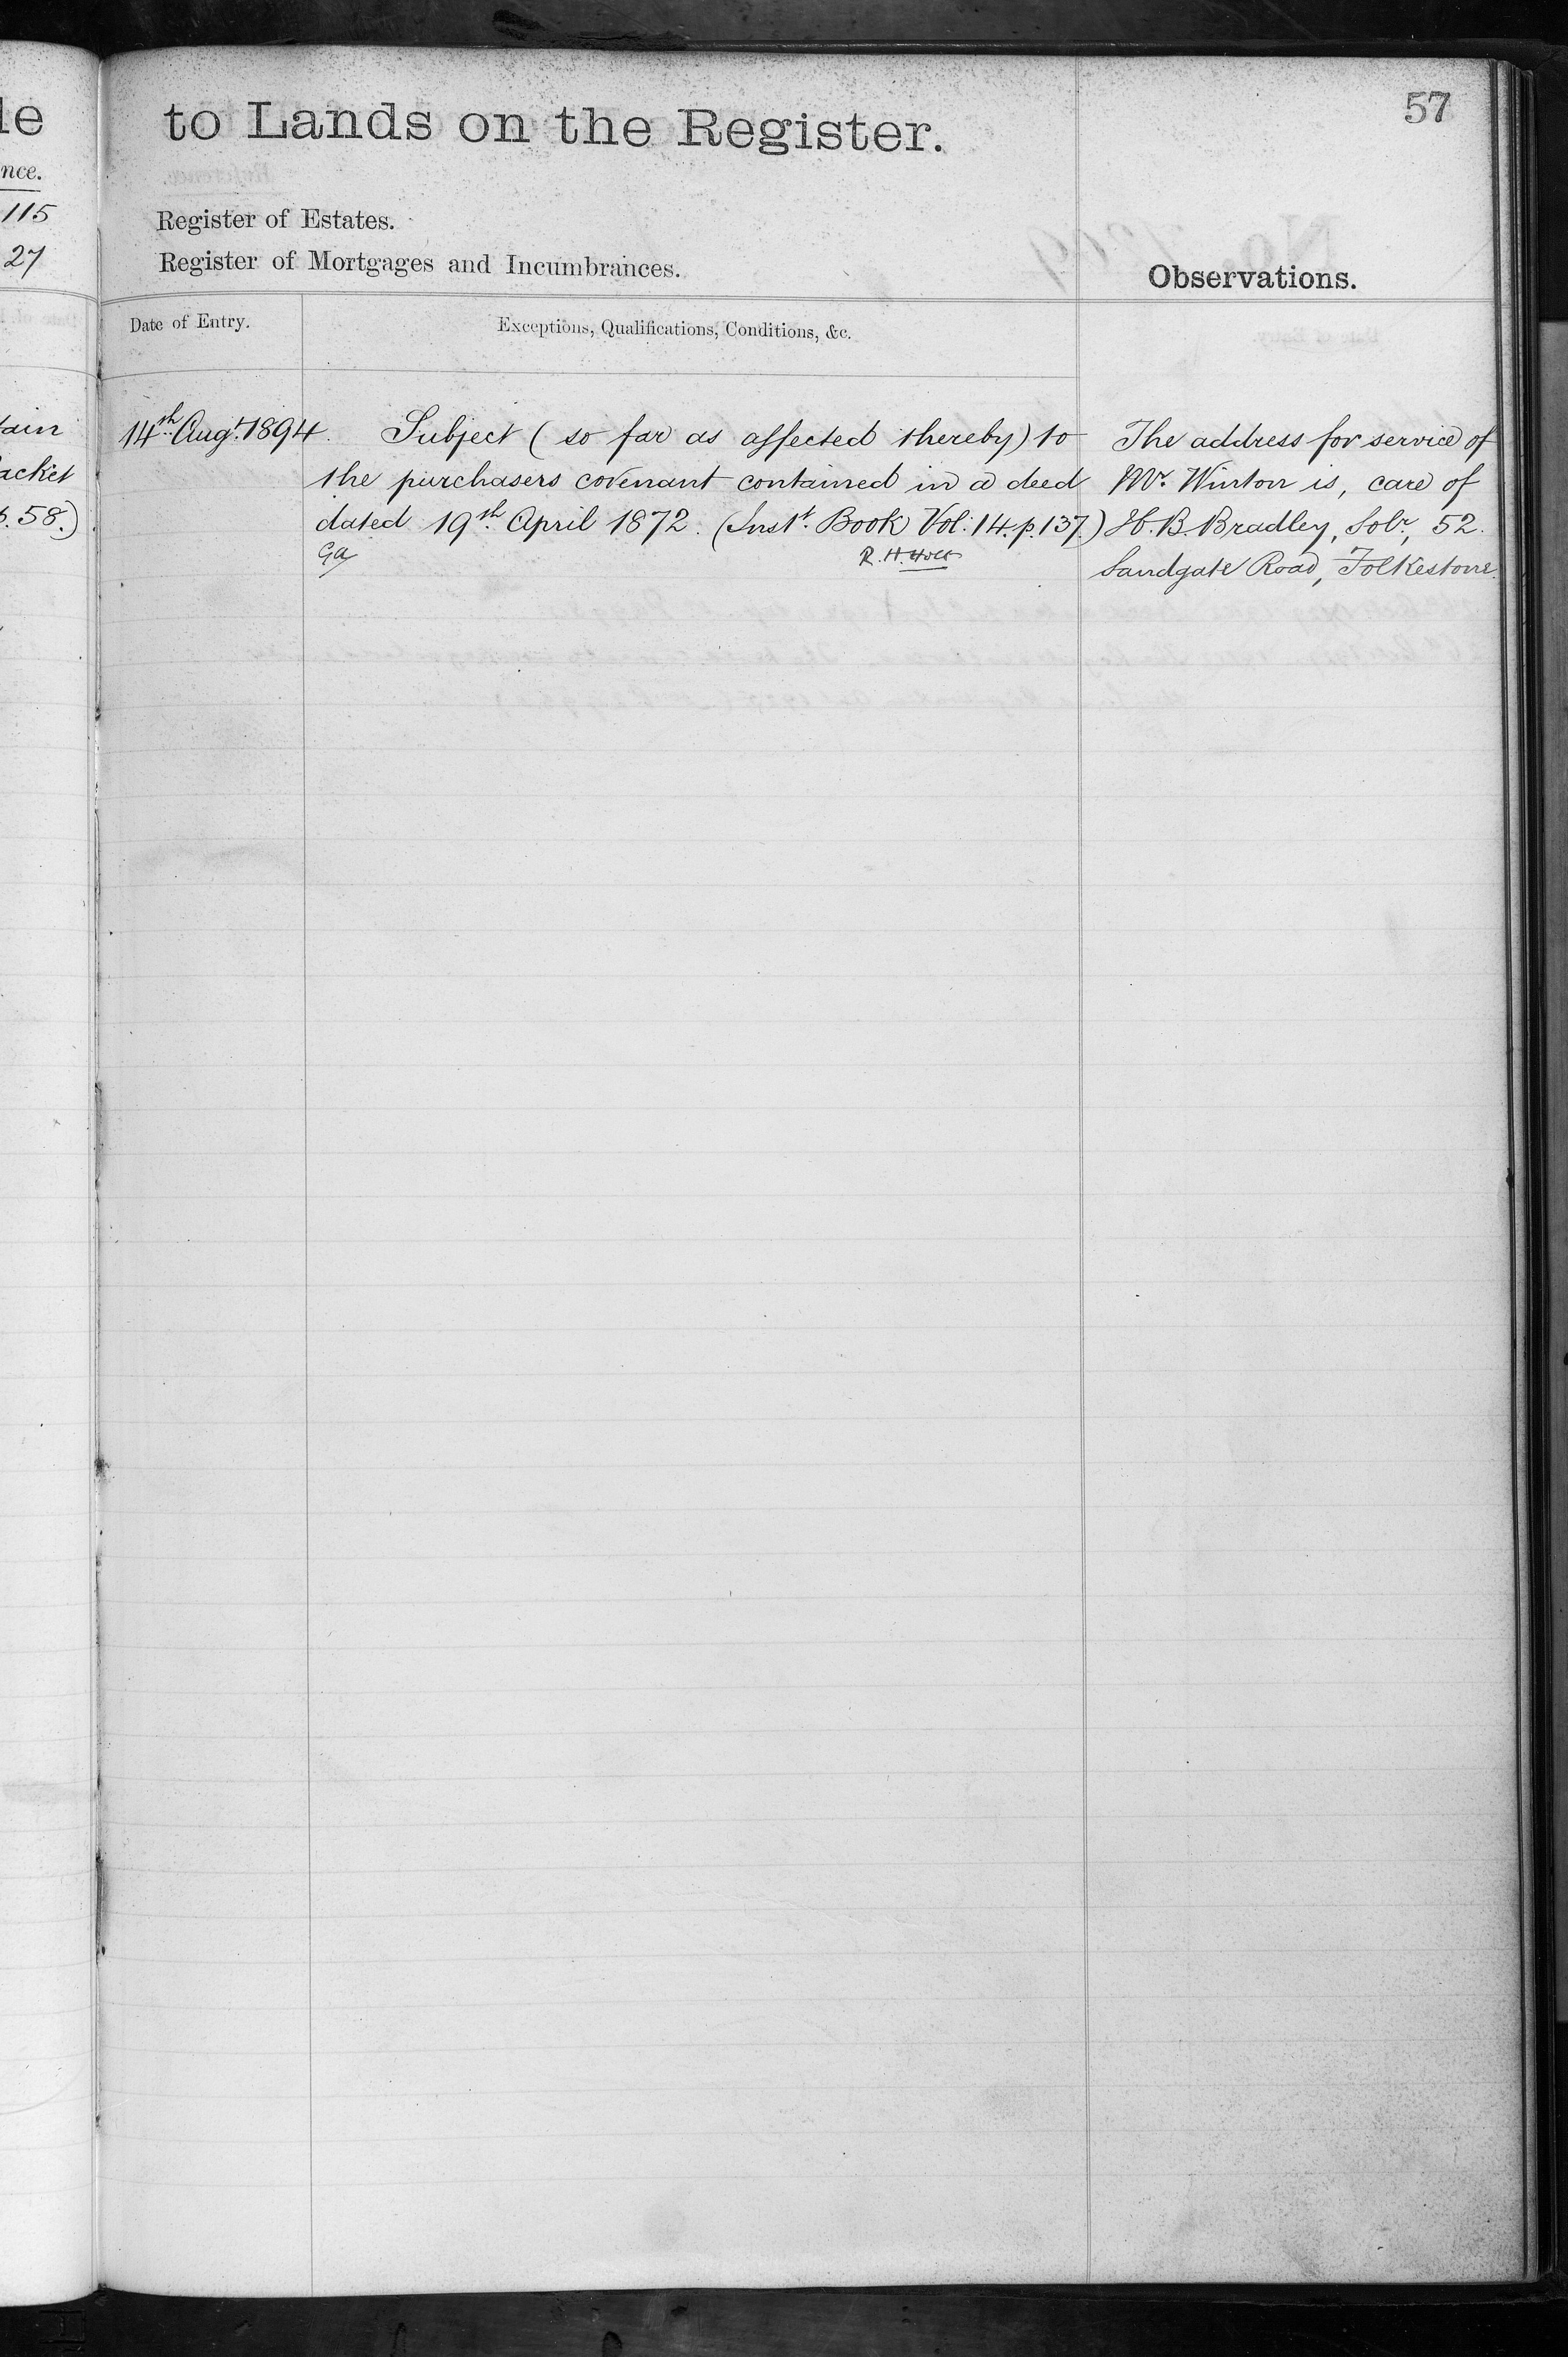 le
nce.
115
27
tain
acket
p. 58.)
to Lands on the Register.
57
Register of Estates.
Register of Mortgages and Incumbrances.
Observations.
Date of Entry.
Exceptions, Qualifications, Conditions, &c.
14th Augt. 1894. Subject (so far as affected thereby) to
the purchasers covenant contained in a deed
dated 19th April 1872. (Inst. Book Vol: 14. p. 137.)
Ga
R. H. Holt
The address for service of
Mr. Winton is, care of
H. B. Bradley, Solr., 52
Sandgate Road, Folkestone.